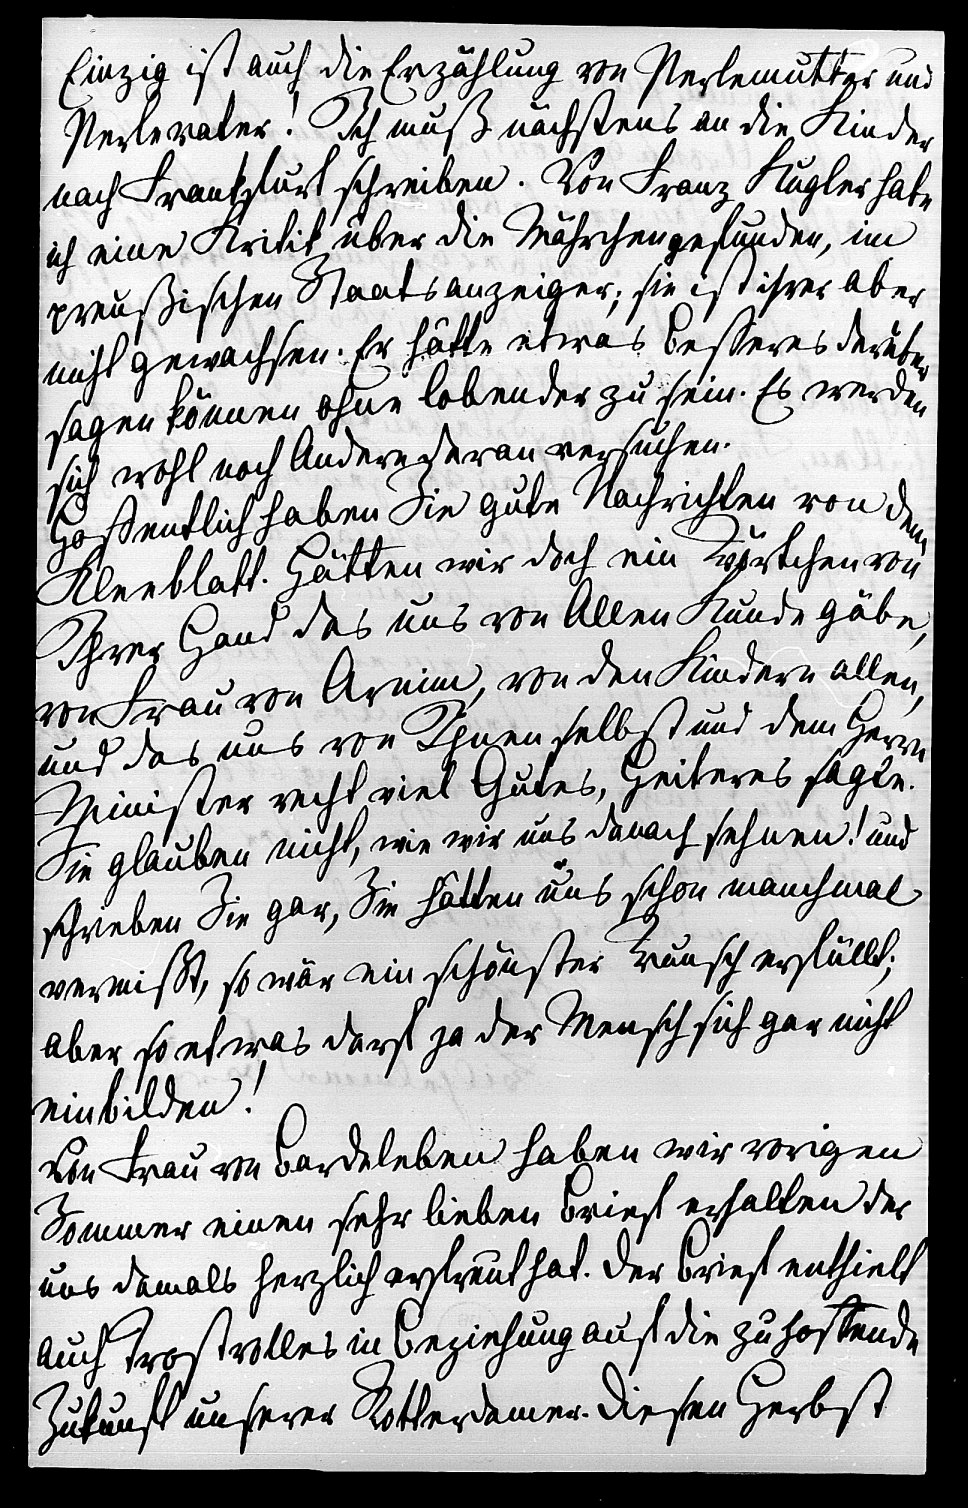 Einzig ist auch die Erzählung von Perlemutter und
Perlevater! Ich muß nächstens an die Kinder
nach Frankfurt schreiben. Von Franz Kugler habe
ich eine Kritik über die Mährchen gefunden, im
preußischen Staatsanzeiger; sie ist ihrer aber
nicht gewachsen. Er hätte etwas Besseres darüber
sagen können ohne lobender zu sein. Es werden
sich wohl noch Andere daran versuchen.
Hoffentlich haben Sie gute Nachrichten von dem
Kleeblatt. Hätten wir doch ein Wörtchen von
Ihrer Hand das uns von Allen Kunde gäbe,
von Frau von Arnim, von den Kindern allen,
und das uns von Ihnen selbst und dem Herrn
Minister recht viel Gutes, Heiteres sagte.
Sie glauben nicht, wie wir uns danach sehnen! und
schrieben Sie gar, Sie hätten uns schon manchmal
vermißt, so wär ein schönster Wunsch erfüllt;
aber so etwas darf ja der Mensch sich gar nicht
einbilden!
Von Frau von Bardeleben haben wir vorigen
Sommer einen sehr lieben Brief erhalten der
uns damals herzlich erfreut hat. Der Brief enthielt
auch Trostvolles in Beziehung auf die zu hoffende
Zukunft unserer Rotterdamer. Diesen Herbst